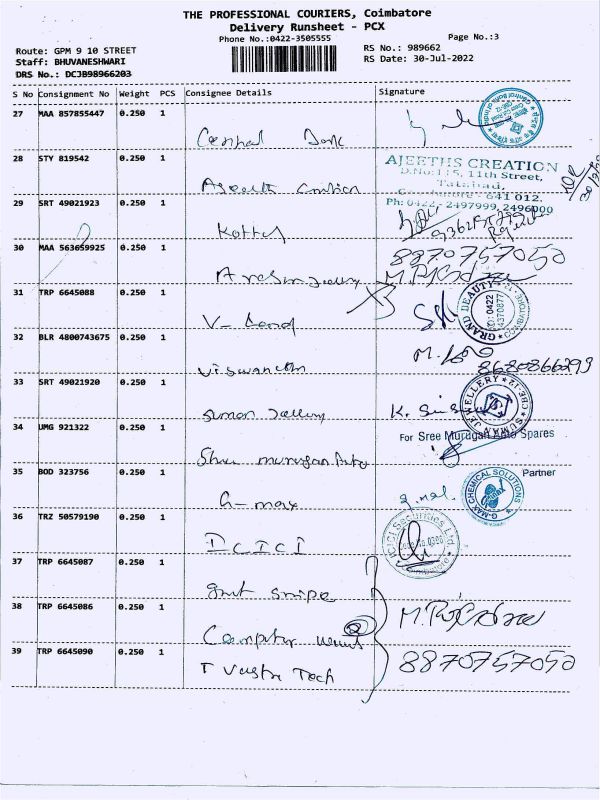 THE PROFESSIONAL COURIERS, Coimbatore
Delivery Runsheet - PCX
Phone No.:0422-3505555
Page No.:3
Route: GPM 9 10 STREET
RS No.: 989662
Staff: BHUVANESHWARI
RS Date: 30-Jul-2022
DRS No.: DCJB98966203
S No Consignment No Weight PCS Consignee Details Signature
27 MAA 857855447 0.250 1
Central Bank
Central Bank of India
28 STY 819542 0.250 1
AJEETHS CREATION
D.No:115, 11th Street,
Tatabad,
Coimbatore - 641 012.
Ph: 0422 - 2497999, 2496000
29 SRT 49021923 0.250 1
30 MAA 563659925 0.250 1
8870757050
31 TRP 6645088 0.250 1
V-
GRAND BEAUTY
0422
4370877
COIMBATORE-12
32 BLR 4800743675 0.250 1
Viswanath
8680866299
33 SRT 49021920 0.250 1
Suman Jellery
K.
SUMAN JEWELLERY CBE-12
34 UMG 921322 0.250 1
For Sree Murugan Auto Spares
Shree murugan Auto
Partner
35 BOD 323756 0.250 1
G-max
G-MAX CHEMICAL SOLUTIONS
36 TRZ 50579190 0.250 1
ICICI
ICICI Securities Ltd
Coimbatore
37 TRP 6645087 0.250 1
38 TRP 6645086 0.250 1
Computer
39 TRP 6645090 0.250 1
T Vastra Tech
8870757050